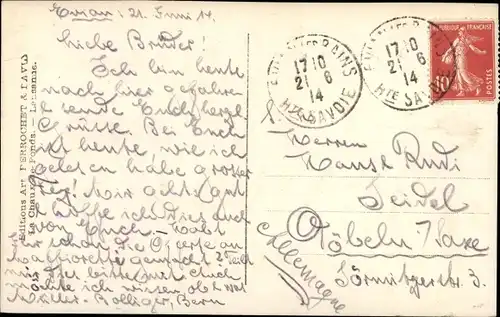 Evian: 21. Juni 14.
Liebe Brüder
Ich bin heute
nach hier gefahren
sende Euch herzl.
Grüsse. Bei Euch
ist heute, wie ich
gelesen habe grosser
Tag! Mir geht's gut
hoffe ich dies auch
von Euch - Habt
Ihr schon die Oferte an
gemacht? Teilt
mir dies bitte mit. Auch
möchte ich wissen, ob
Müller-Rolliger, Bern
Editions Art. PERROCHET & DAVID
La Chaux-de-Fonds. - Lausanne.
EVIAN LES BAINS
17 10
21 6
14
HTE SAVOIE
EVIAN LES BAINS
17 10
21 6
14
HTE SAVOIE
REPUBLIQUE FRANCAISE
10
POSTES
Herren
Hans & Rudi
Seidel
Döbeln i/Saxe
Sörmitzerstr. 3.
Allemagne